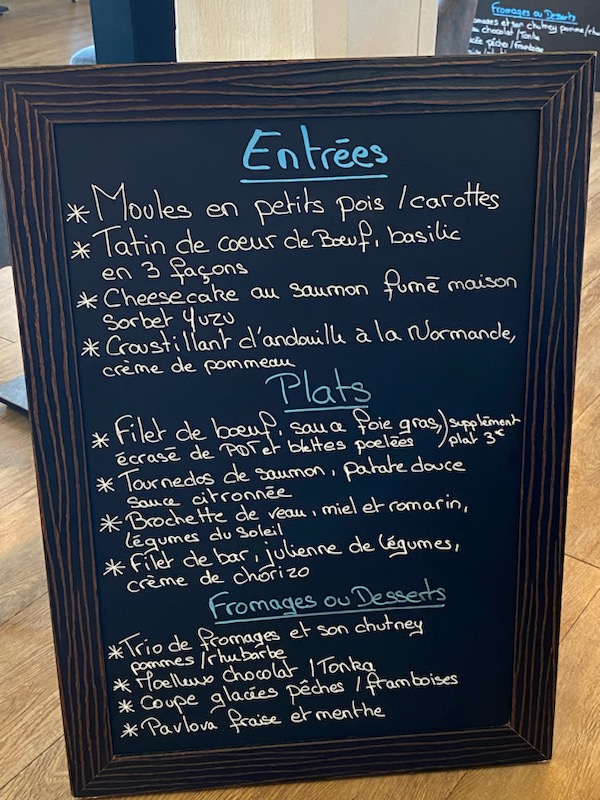 Fromages ou Desserts
et son chutney pomme/
chocolat/Tonka
pêches/framboise
Entrées
* Moules en petits pois / carottes
* Tatin de coeur de Boeuf, basilic
en 3 façons
* Cheesecake au saumon fumé maison
Sorbet Yuzu
* Croustillant d'andouille à la Normande,
crème de pommeau
Plats
* Filet de boeuf, sauce foie gras,
écrasé de PDT et blettes poelées
) supplément
plat 3€
* Tournedos de saumon, patate douce
sauce citronnée
* Brochette de veau, miel et romarin,
légumes du Soleil
* Filet de bar, julienne de légumes,
crème de chorizo
Fromages ou Desserts
* Trio de fromages et son chutney
pommes/rhubarbe
* Moelleux chocolat / Tonka
* Coupe glacées pêches / framboises
* Pavlova fraise et menthe